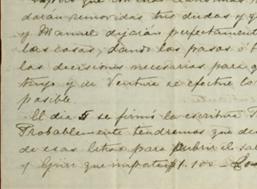 darán removidas tus dudas y q
y Manuel dejarán perfectament
las cosas, dando los pasos ó t
las decisiones necesarias para q
tuyo y de Ventura se efectúe lo
posible.
El día 5 se firmó la escritura
Probablemente tendremos que de
de esas letras para cubrir el sal
y Gpir que importa $1.100